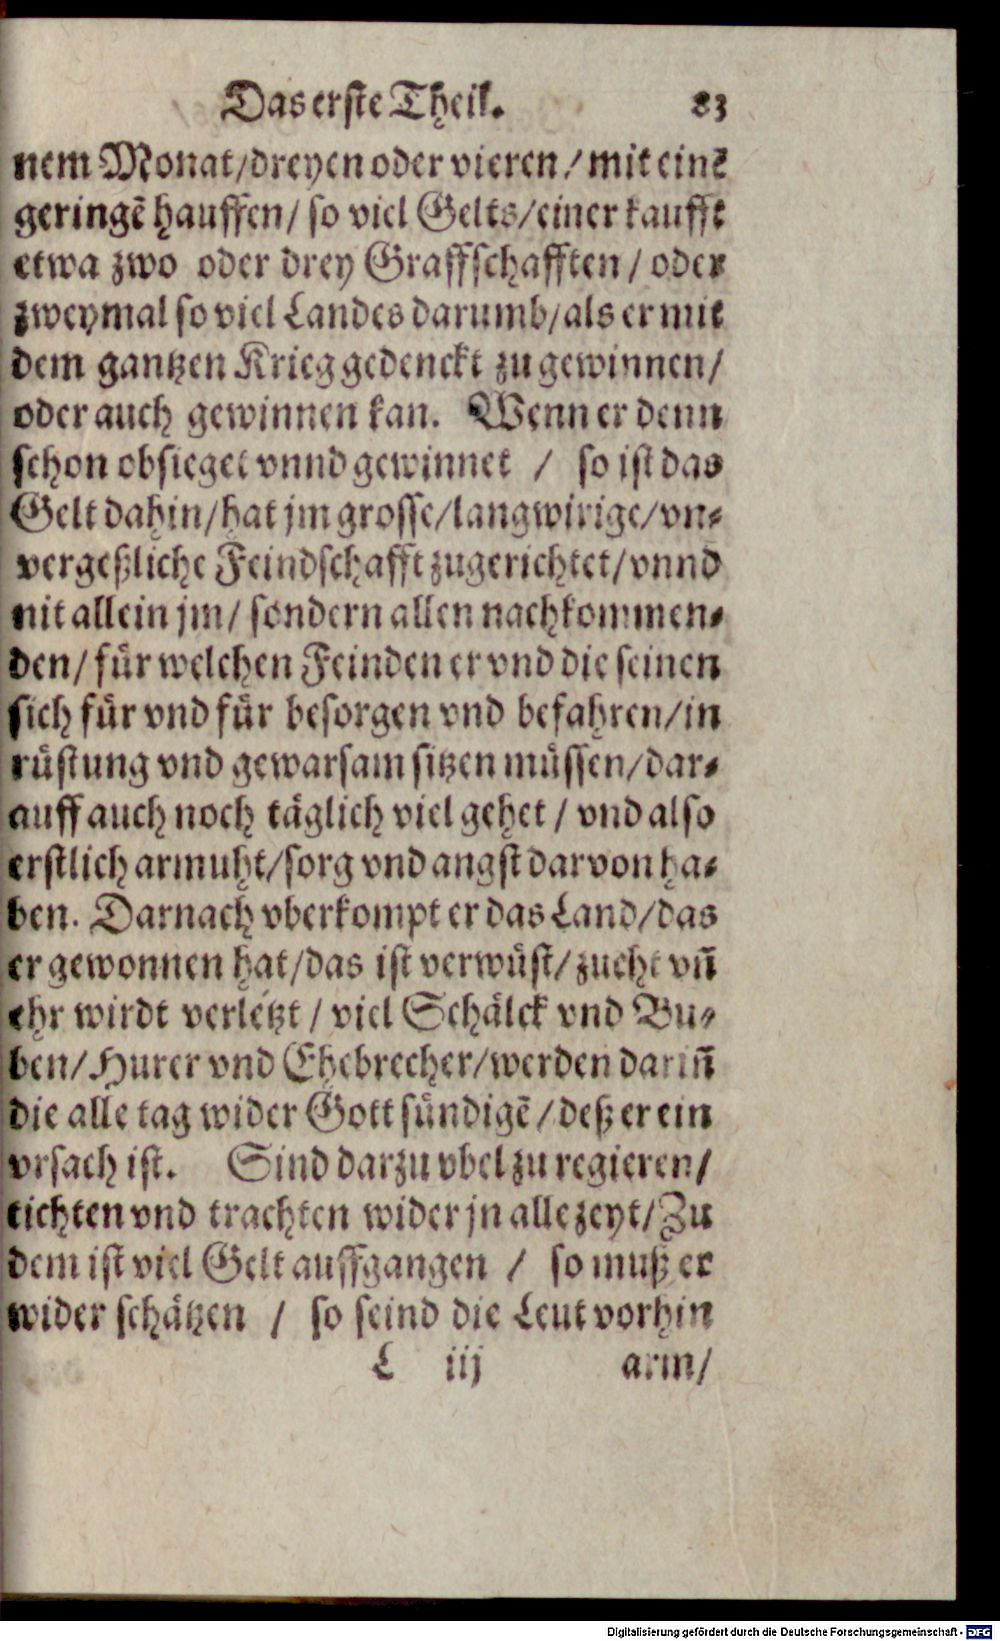 Das erste Theil. 83
nem Monat/dreyen oder vieren/mit einẽ
geringẽ hauffen/ so viel Gelts/einer kaufft
etwa zwo oder drey Graffschafften/ oder
zweymal so viel Landes darumb/als er mit
dem gantzen Krieg gedenckt zu gewinnen/
oder auch gewinnen kan. Wenn er denn
schon obsieget vnnd gewinnet / so ist das
Gelt dahin/hat jm grosse/langwirige/vn⸗
vergeßliche Feindschafft zugerichtet/vnnd
nit allein jm/ sondern allen nachkommen⸗
den/ fuͤr welchen Feinden er vnd die seinen
sich fuͤr vnd fuͤr besorgen vnd befahren/in
ruͤstung vnd gewarsam sitzen muͤssen/dar⸗
auff auch noch taͤglich viel gehet / vnd also
erstlich armuht/sorg vnd angst darvon ha⸗
ben. Darnach vberkompt er das Land/das
er gewonnen hat/das ist verwuͤst/zucht vñ
ehr wirdt verletzt / viel Schaͤlck vnd Bu⸗
ben/Hurer vnd Ehebrecher/werden dariñ
die alle tag wider Gott suͤndigẽ/deß er ein
vrsach ist. Sind darzu vbel zu regieren/
tichten vnd trachten wider jn alle zeyt/Zu
dem ist viel Gelt auffgangen / so muß er
wider schaͤtzen / so seind die Leut vorhin
L iij arm/
Digitalisierung gefördert durch die Deutsche Forschungsgemeinschaft - DFG